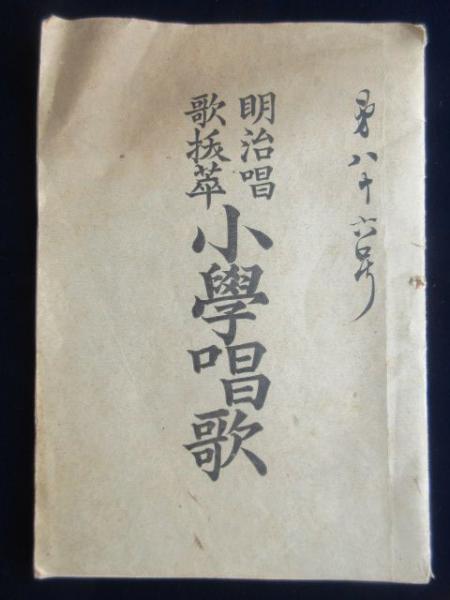 第八十六号
明治唱
歌拔萃
小學唱歌